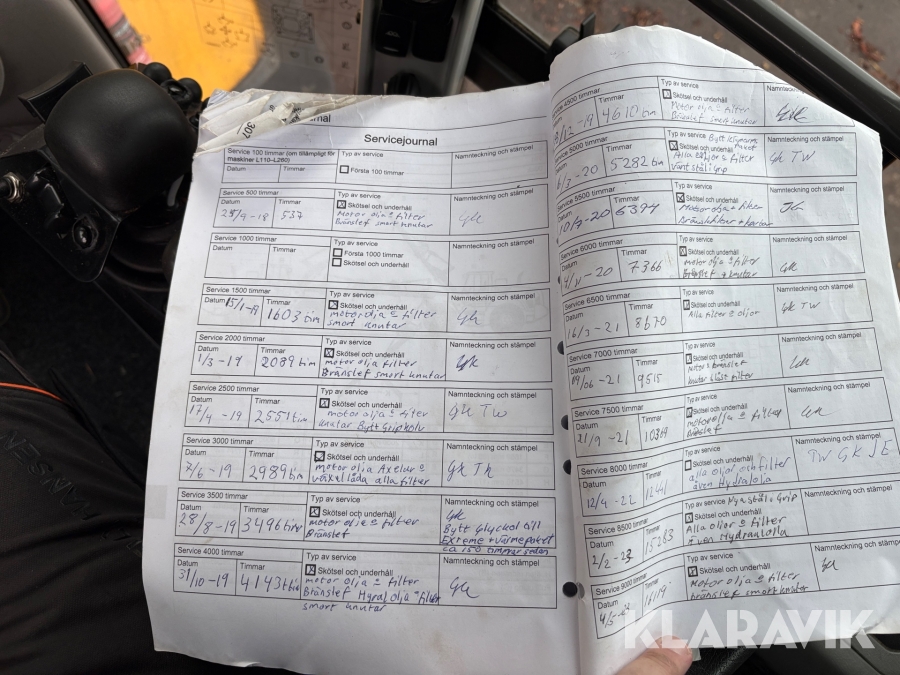 307
rnal
Servicejournal
Service 100 timmar (om tillämpligt för maskiner L110–L260)
Datum
Timmar
Typ av service
Första 100 timmar
Namnteckning och stämpel
Service 500 timmar
Datum
Timmar
537
Typ av service
Skötsel och underhåll
Motor olja ± filter
Bränslef smort knutar
Namnteckning och stämpel
Gk
Service 1000 timmar
Datum
Timmar
Typ av service
Första 1000 timmar
Skötsel och underhåll
Namnteckning och stämpel
Service 1500 timmar
Datum
15/1-19
Timmar
1603 tim
Typ av service
Skötsel och underhåll
motor olja ± filter
smort knutar
Namnteckning och stämpel
Gk
Service 2000 timmar
Datum
1/3-19
Timmar
2089 tim
Typ av service
Skötsel och underhåll
motor olja filter
Bränslef smort knutar
Namnteckning och stämpel
Gk
Service 2500 timmar
Datum
17/4-19
Timmar
2551 tim
Typ av service
Skötsel och underhåll
motor olja ± filter
knutar Bytt Gripkolv
Namnteckning och stämpel
Gk TW
Service 3000 timmar
Datum
2/6-19
Timmar
2989 tim
Typ av service
Skötsel och underhåll
motor olja Axelar ±
växellåda alla filter
Namnteckning och stämpel
Gk
Service 3500 timmar
Datum
28/8-19
Timmar
3496 tim
Typ av service
Skötsel och underhåll
motor olje ± filter
Bränslef
Namnteckning och stämpel
Gk
Bytt Glyckol till
Extreme + värmepaket
ca 150 timmar sedan
Service 4000 timmar
Datum
31/10-19
Timmar
4143 tim
Typ av service
Skötsel och underhåll
motor olja ± filter
Bränslef Hyral olja ± filter
smort knutar
Namnteckning och stämpel
Gk
Service 4500 timmar
Timmar
4610 tim
Typ av service
Skötsel och underhåll
Motor olja ± filter
Bränslef smort knutar
Namnteckning och stämpel
Gk
Service 5000 timmar
Datum
6/3-20
Timmar
5282 tim
Typ av service
Skötsel och underhåll
Alla oljor ± filter
vänt stål i Grip
Namnteckning och stämpel
Gk TW
Service 5500 timmar
Datum
10/7-20
Timmar
6374
Typ av service
Skötsel och underhåll
Motor olja + filter
Namnteckning och stämpel
Service 6000 timmar
Datum
Timmar
7366
Typ av service
Skötsel och underhåll
motor olja ± filter
Bränslef + knutar
Namnteckning och stämpel
Gk
Service 6500 timmar
Datum
16/3-21
Timmar
8670
Typ av service
Skötsel och underhåll
Alla filter ± oljor
Namnteckning och stämpel
Gk TW
Service 7000 timmar
Datum
19/06-21
Timmar
9515
Typ av service
Skötsel och underhåll
Namnteckning och stämpel
Gk
Service 7500 timmar
Datum
21/9-21
Timmar
10369
Typ av service
Skötsel och underhåll
motor olja ± filter
Bränslef
Namnteckning och stämpel
Gk
Service 8000 timmar
Datum
12/4-22
Timmar
Typ av service
Skötsel och underhåll
alla oljor och filter
även Hydralolja
Namnteckning och stämpel
TW GK JE
Service 8500 timmar
Datum
2/2-23
Timmar
15263
Typ av service Nya stål i Grip
Skötsel och underhåll
Alla oljor ± filter
även Hydraulolla
Namnteckning och stämpel
Gk
Service 9000 timmar
Datum
Timmar
16119
Typ av service
Skötsel och underhåll
Motor olja ± filter
bränslef smort knutar
Namnteckning och stämpel
Gk
KLARAVIK